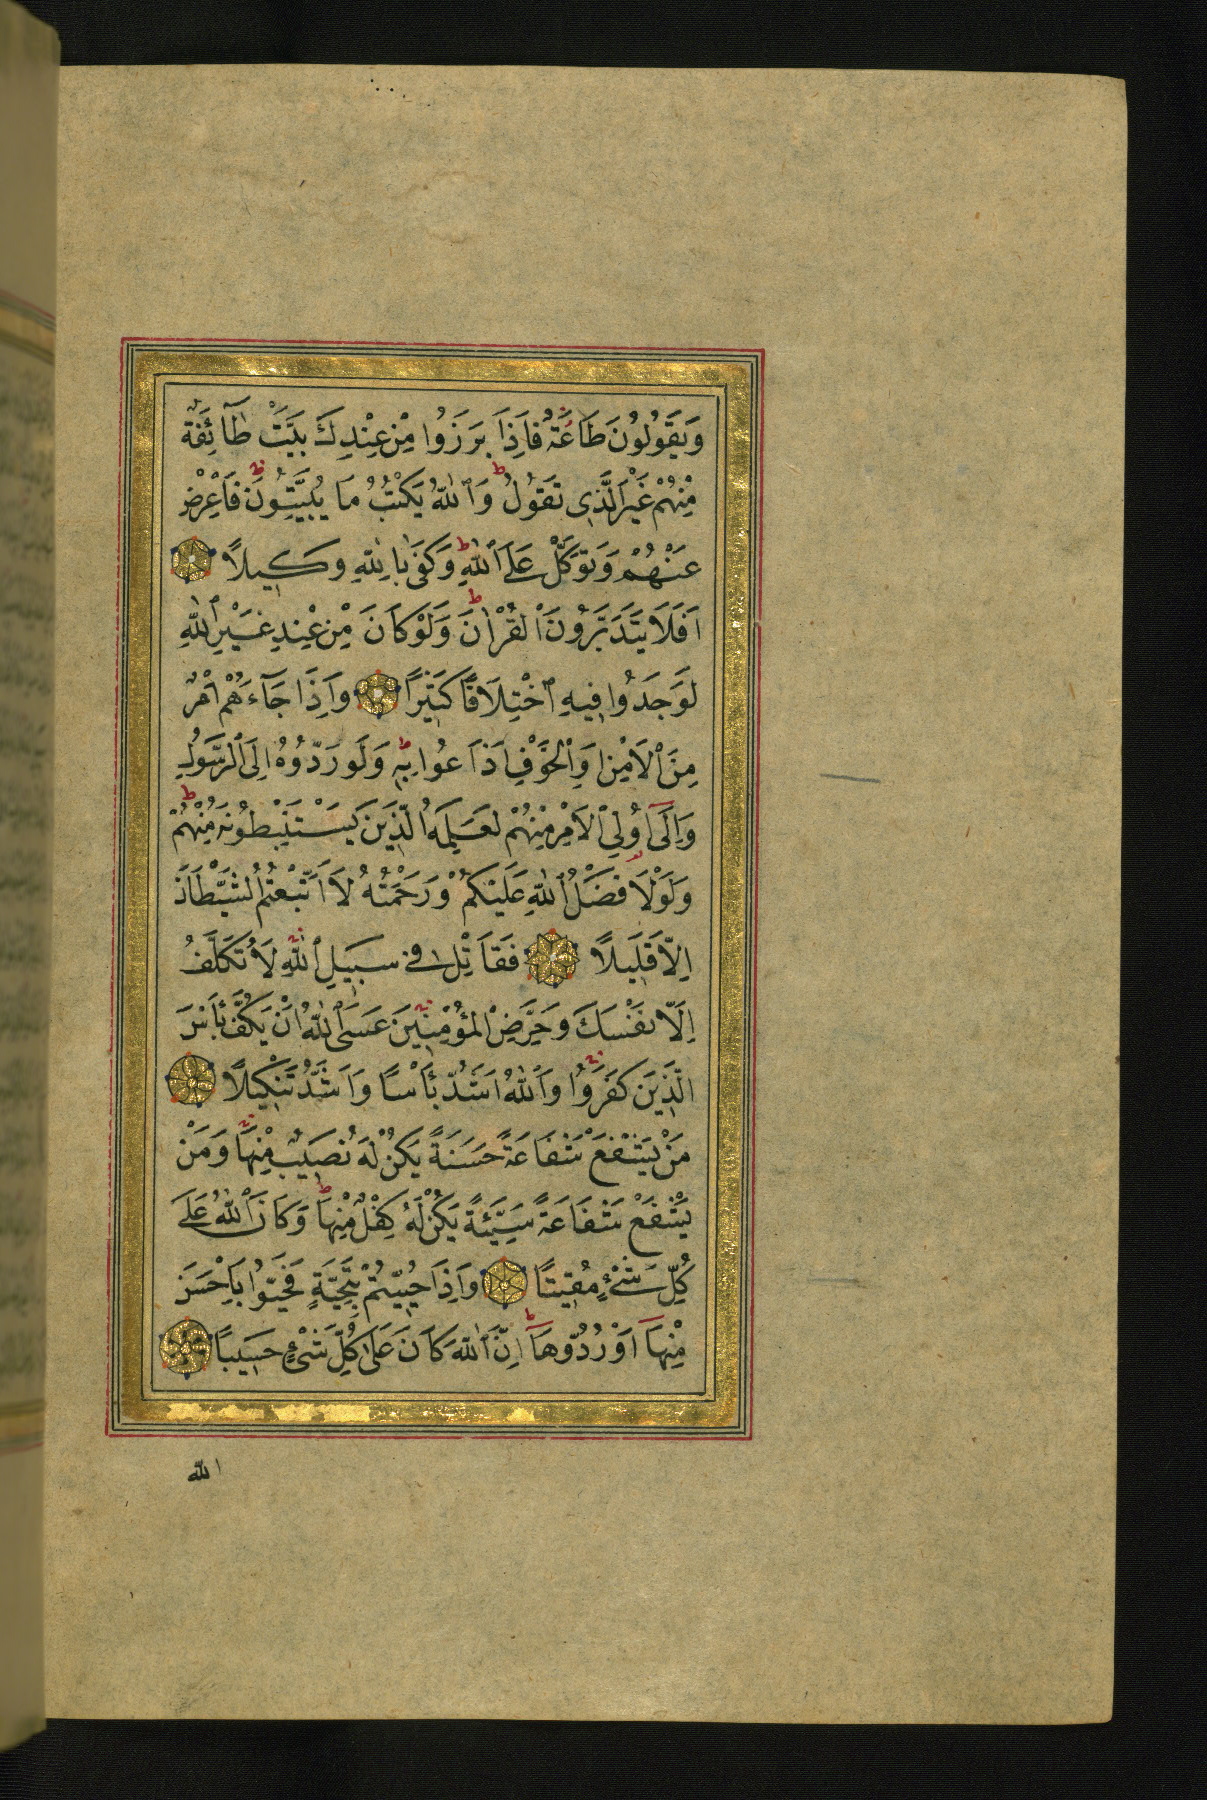 وَيَقُولُونَ طَاعَةٌ فَاِذَا بَرَزُوا مِنْ عِنْدِكَ بَيَّتَ طَآئِفَةٌ
مِنْهُمْ غَيْرَ الَّذِى تَقُولُ وَٱللّٰهُ يَكْتُبُ مَا يُبَيِّتُونَ فَاَعْرِضْ
عَنْهُمْ وَتَوَكَّلْ عَلَى ٱللّٰهِ وَكَفٰى بِاللّٰهِ وَكِيلاً
اَفَلَا يَتَدَبَّرُونَ ٱلْقُرْاٰنَ وَلَوْ كَانَ مِنْ عِنْدِ غَيْرِ ٱللّٰهِ
لَوَجَدُوا فِيهِ ٱخْتِلَافًا كَثِيرًا وَاِذَا جَآءَهُمْ اَمْرٌ
مِنَ ٱلْاَمْنِ اَوِ ٱلْخَوْفِ اَذَاعُوا بِهٖ وَلَوْ رَدُّوهُ اِلَى ٱلرَّسُولِ
وَاِلٰٓى اُولِى ٱلْاَمْرِ مِنْهُمْ لَعَلِمَهُ الَّذِينَ يَسْتَنْبِطُونَهُ مِنْهُمْ
وَلَوْلَا فَضْلُ ٱللّٰهِ عَلَيْكُمْ وَرَحْمَتُهُ لَاتَّبَعْتُمُ ٱلشَّيْطَانَ
اِلَّا قَلِيلاً فَقَاتِلْ فِى سَبِيلِ ٱللّٰهِ لَا تُكَلَّفُ
اِلَّا نَفْسَكَ وَحَرِّضِ ٱلْمُؤْمِنِينَ عَسَى ٱللّٰهُ اَنْ يَكُفَّ بَأْسَ
الَّذِينَ كَفَرُوا وَٱللّٰهُ اَشَدُّ بَأْسًا وَاَشَدُّ تَنْكِيلاً
مَنْ يَشْفَعْ شَفَاعَةً حَسَنَةً يَكُنْ لَهُ نَصِيبٌ مِنْهَا وَمَنْ
يَشْفَعْ شَفَاعَةً سَيِّئَةً يَكُنْ لَهُ كِفْلٌ مِنْهَا وَكَانَ ٱللّٰهُ عَلٰى
كُلِّ شَىْءٍ مُقِيتًا وَاِذَا حُيِّيتُمْ بِتَحِيَّةٍ فَحَيُّوا بِاَحْسَنَ
مِنْهَآ اَوْ رُدُّوهَا اِنَّ ٱللّٰهَ كَانَ عَلٰى كُلِّ شَىْءٍ حَسِيبًا
الله